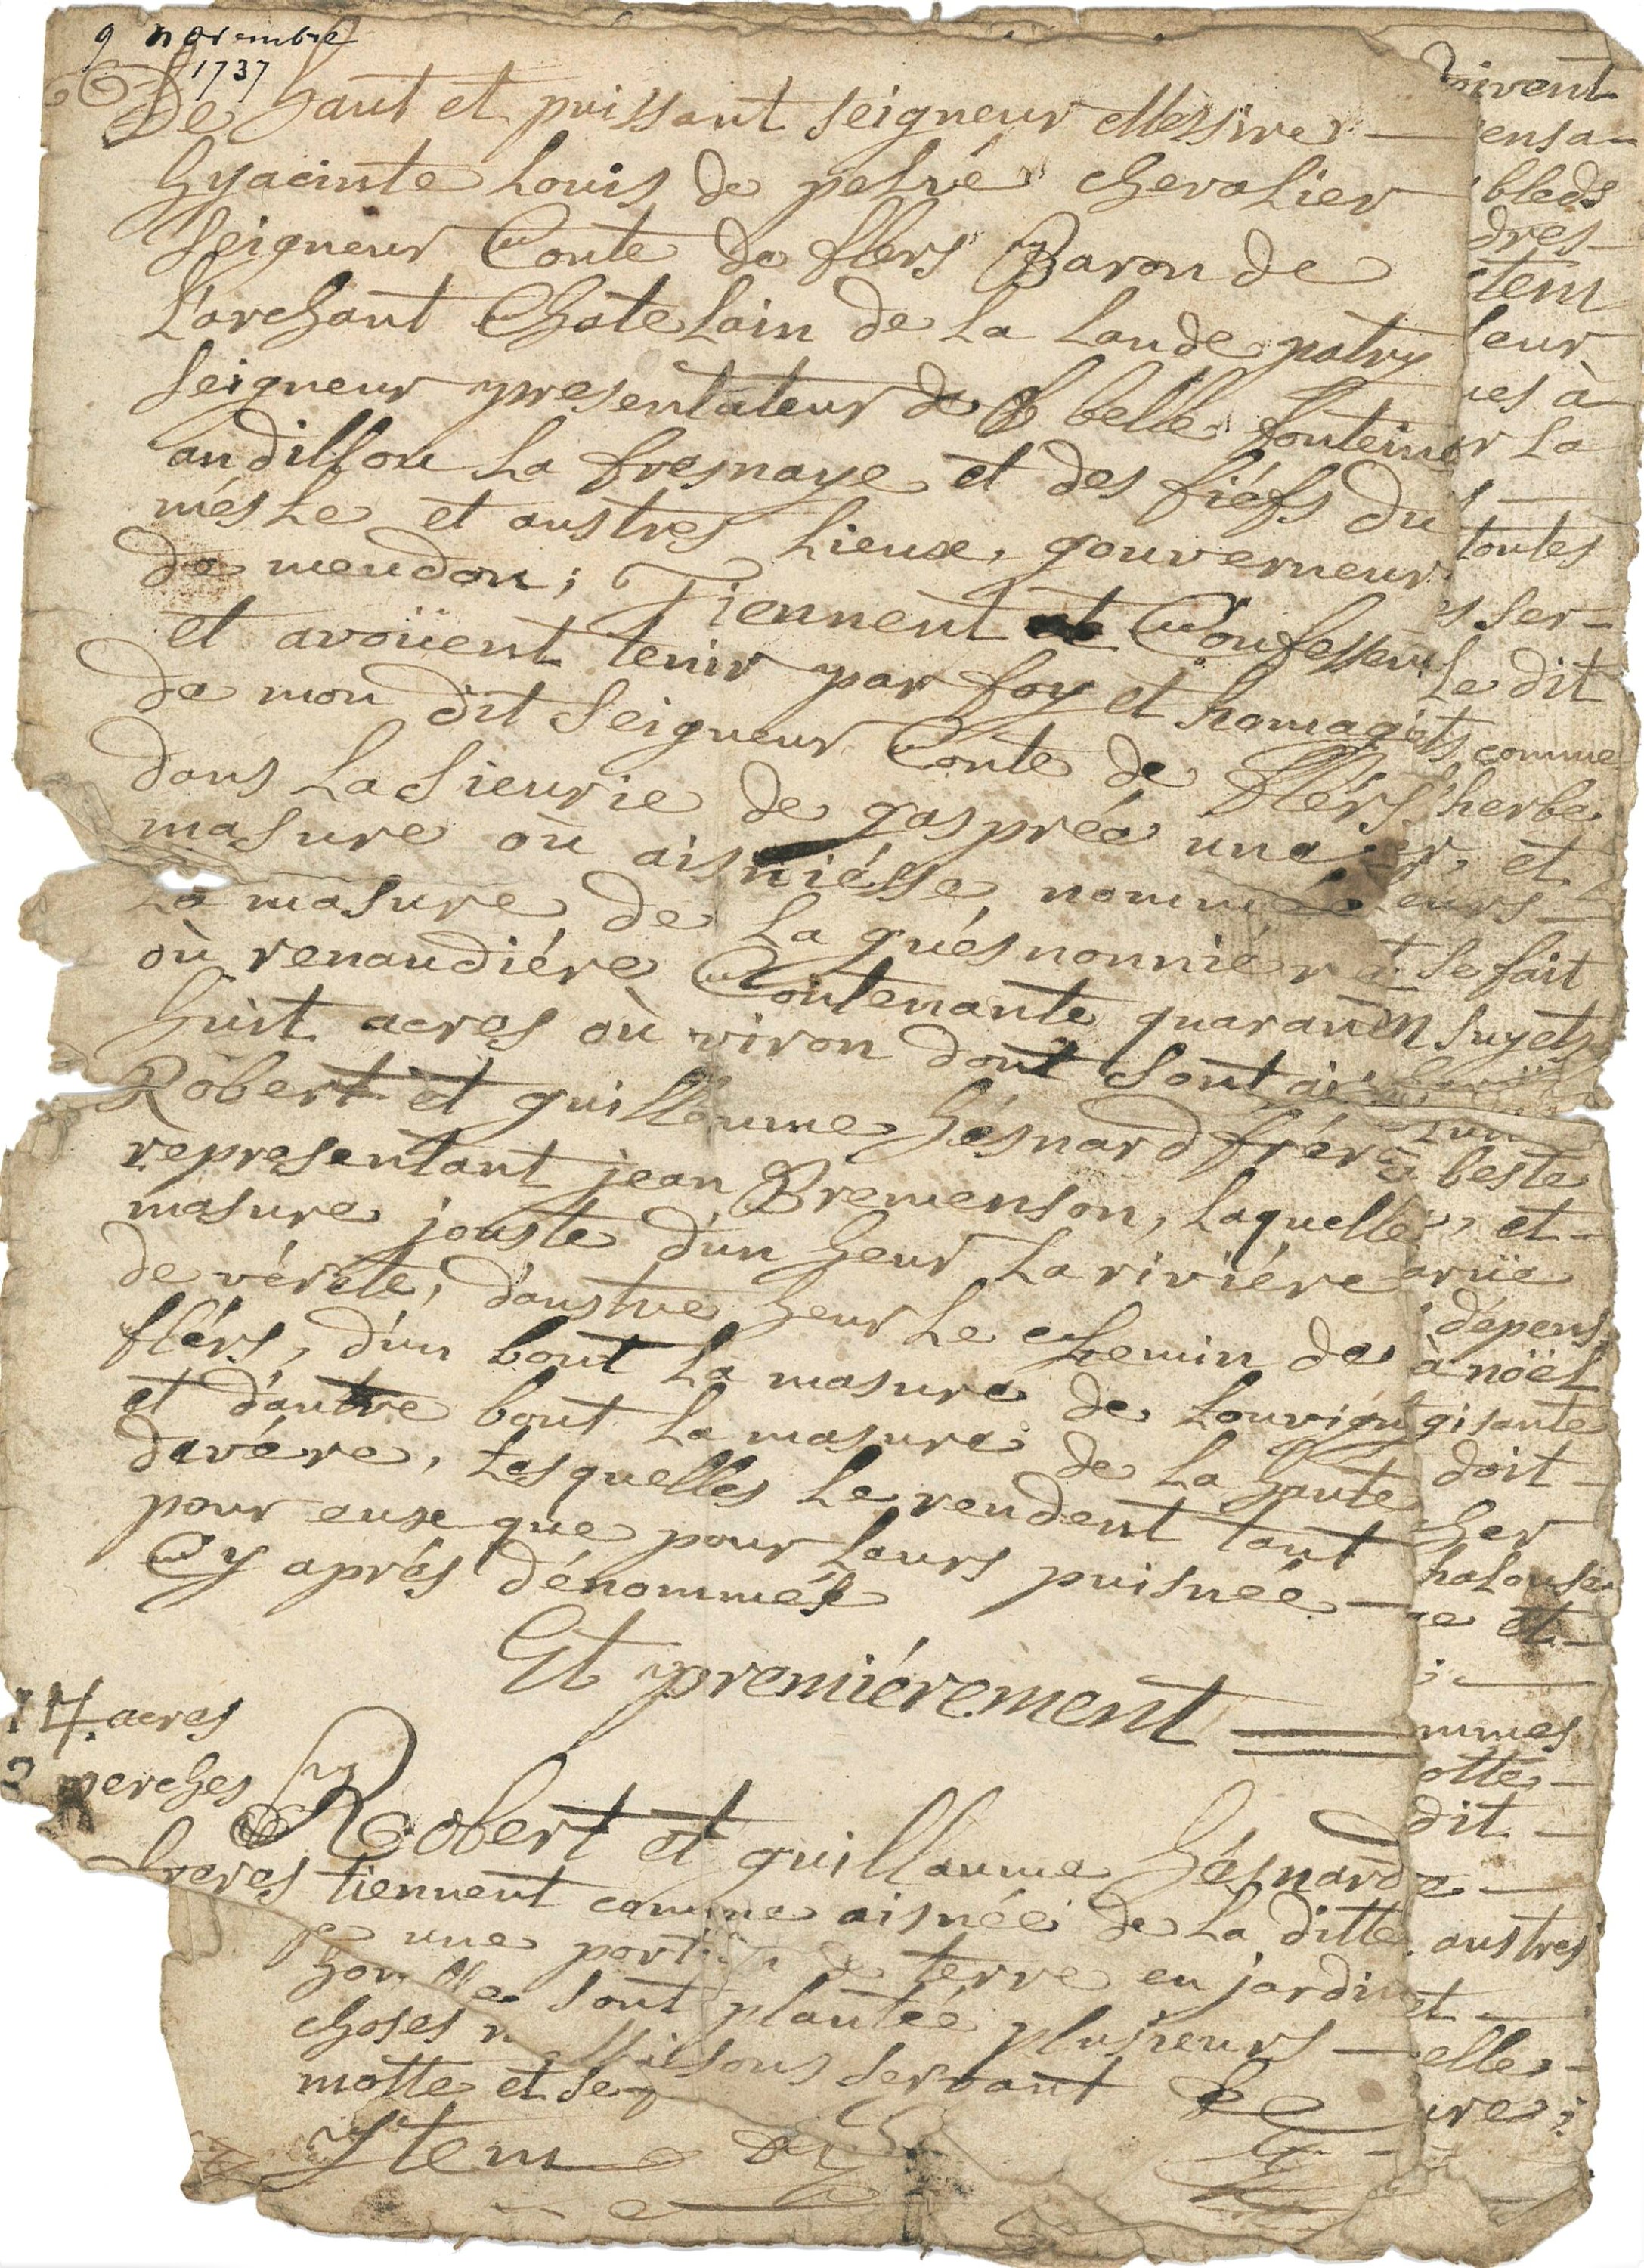 9 novembre
1737
De haut et puissant seigneur Messire
hyacinte Louis de pelvé chevalier
seigneur Conte de flers Baron de
Larchant Chatelain de La Lande patry
seigneur presentateur de belle fonteine
andillou La fresnaye et des fiéfs du
mésle et austres Lieux, gouverneur
de meudon; Tiennent Confessent
et avoüent tenir par foy et homage
de mon dit seigneur Conte de flérs
dans La sieurie de gaspréé une
masure où aisniésse, nommée
La masure de La guésnonniére
où renaudiére Contenante quarante
huit acres où viron dont sont
Robert et guilleaume hésnard fréres
representant jean Bremenson, laquelle
masure jouste d'un heur La riviére
de véréte, d'austre heur Le chemin de
flérs, d'un bout La masure de Louvigny
et d'autre bout La masure de La haute
devére, Lesquelles Le rendent tant
pour eux que pour Leurs puisnéé
Cy aprés dénommés
Et premiérement
14 acres
2 perches
Robert et guillaume hésnard
freres tiennent comme aisnéé de La ditte
une portion de terre en jardin
sont plantéé plusieurs
choses
motte et
Item
doivent
bleds
dres
item
leur
à
La
toutes
ser-
Le dit
comme
herbe
et
leurs
se fait
sujets
beste
et
dépens
à nöël
gisante
doit
et
dit
austres
elle